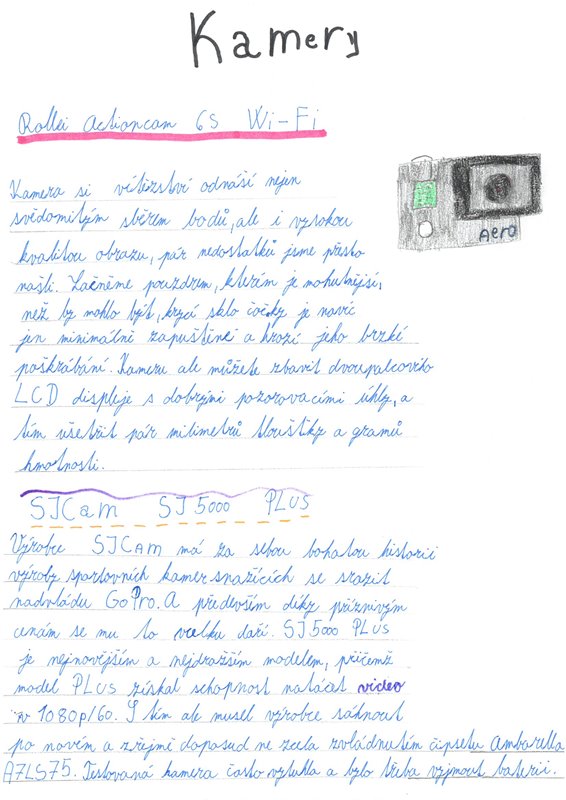 Kamery
Rollei Actioncam 6S Wi-Fi
Kamera si vítězství odnáší nejen
svědomitým sběrem bodů, ale i vysokou
kvalitou obrazu, pár nedostatků jsme přesto
našli. Začněme pouzdrem, kterém je mohutnější,
než by mohlo být, krycí sklo čočky je navíc
jen minimálně zapuštěné a hrozí jeho brzké
poškrábání. Kameru ale můžete zbavit dvoupalcového
LCD displeje s dobrými pozorovacími úhly, a
tím ušetřit pár milimetrů tloušťky a gramů
hmotnosti.
Aero
SJCam SJ5000 PLUS
Výrobce SJCAM má za sebou bohatou historii
výroby sportovních kamer snažících se srazit
nadvládu GoPro. A především díky příznivým
cenám se mu to vcelku daří. SJ5000 PLUS
je nejnovějším a nejdražším modelem, přičemž
model PLUS získal schopnost natáčet video
v 1080p/60. S tím ale musel výrobce sáhnout
po novém a zřejmě doposud ne zcela zvládnutém čipsetu Ambarella
A7LS75. Testovaná kamera často vytuhla a bylo třeba vyjmout baterii.